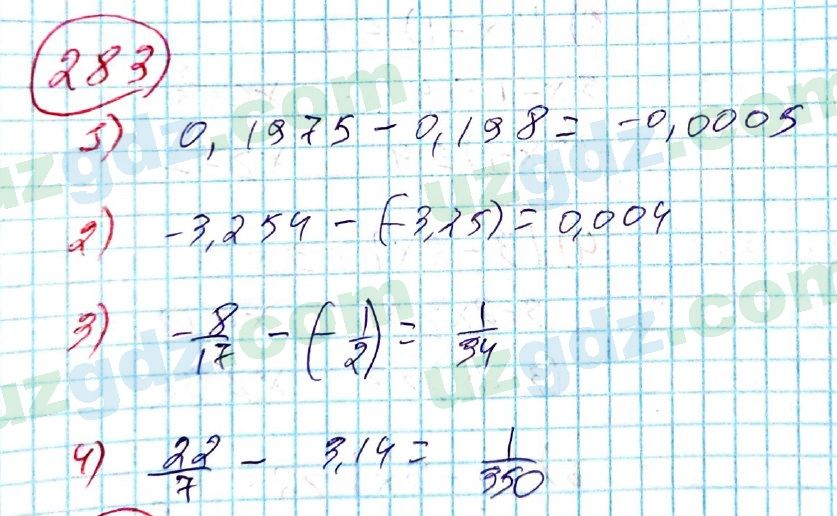 283
1) 0,1975 - 0,198 = -0,0005
2) -3,254 - (-3,25) = 0,004
3) -8/17 - (-1/2) = 1/34
4) 22/7 - 3,14 = 1/350
uzgdz.com
uzgdz.com
uzgdz.com
uzgdz.com